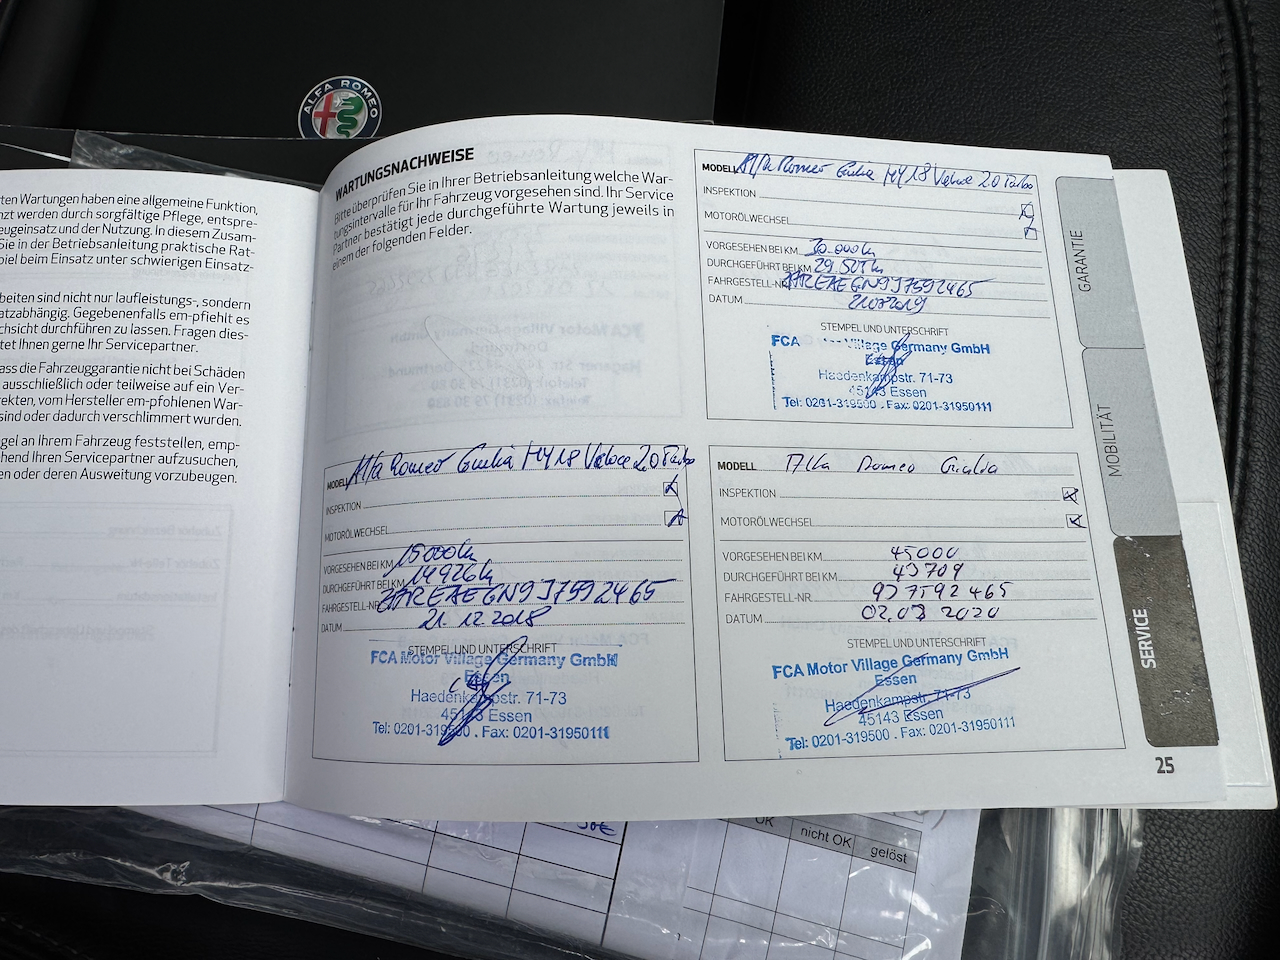 ALFA ROMEO
ten Wartungen haben eine allgemeine Funktion,
nzt werden durch sorgfältige Pflege, entspre-
eugeinsatz und der Nutzung. In diesem Zusam-
Sie in der Betriebsanleitung praktische Rat-
piel beim Einsatz unter schwierigen Einsatz-
beiten sind nicht nur laufleistungs-, sondern
atzabhängig. Gegebenenfalls em-pfiehlt es
chsicht durchführen zu lassen. Fragen dies-
tet Ihnen gerne Ihr Servicepartner.
ass die Fahrzeuggarantie nicht bei Schäden
ausschließlich oder teilweise auf ein Ver-
rekten, vom Hersteller em-pfohlenen War-
sind oder dadurch verschlimmert wurden.
gel an Ihrem Fahrzeug feststellen, emp-
hend Ihren Servicepartner aufzusuchen,
en oder deren Ausweitung vorzubeugen.
WARTUNGSNACHWEISE
Bitte überprüfen Sie in Ihrer Betriebsanleitung welche War-
tungsintervalle für Ihr Fahrzeug vorgesehen sind. Ihr Service
Partner bestätigt jede durchgeführte Wartung jeweils in
einem der folgenden Felder.
MODELL Alfa Romeo Giulia MY18 Veloce 2.0 Turbo
INSPEKTION
MOTORÖLWECHSEL
VORGESEHEN BEI KM 30.000km
DURCHGEFÜHRT BEI KM
FAHRGESTELL-NR. ZAREAEGN9J7592465
DATUM
STEMPEL UND UNTERSCHRIFT
FCA Motor Village Germany GmbH
Essen
Haedenkampstr. 71-73
45143 Essen
Tel: 0201-319500 . Fax: 0201-31950111
MODELL Alfa Romeo Giulia MY18 Veloce 2.0 Turbo
INSPEKTION
MOTORÖLWECHSEL
VORGESEHEN BEI KM 15000km
DURCHGEFÜHRT BEI KM 14926km
FAHRGESTELL-NR. ZAREAEGN9J7592465
DATUM 21.12.2018
STEMPEL UND UNTERSCHRIFT
FCA Motor Village Germany GmbH
Essen
Haedenkampstr. 71-73
45143 Essen
Tel: 0201-319500 . Fax: 0201-31950111
MODELL Alfa Romeo Giulia
INSPEKTION
MOTORÖLWECHSEL
VORGESEHEN BEI KM 45000
DURCHGEFÜHRT BEI KM 43709
FAHRGESTELL-NR. 9J7592465
DATUM 02.03 2020
STEMPEL UND UNTERSCHRIFT
FCA Motor Village Germany GmbH
Essen
Haedenkampstr. 71-73
45143 Essen
Tel: 0201-319500 . Fax: 0201-31950111
GARANTIE
MOBILITÄT
SERVICE
25
OK
nicht OK
gelöst